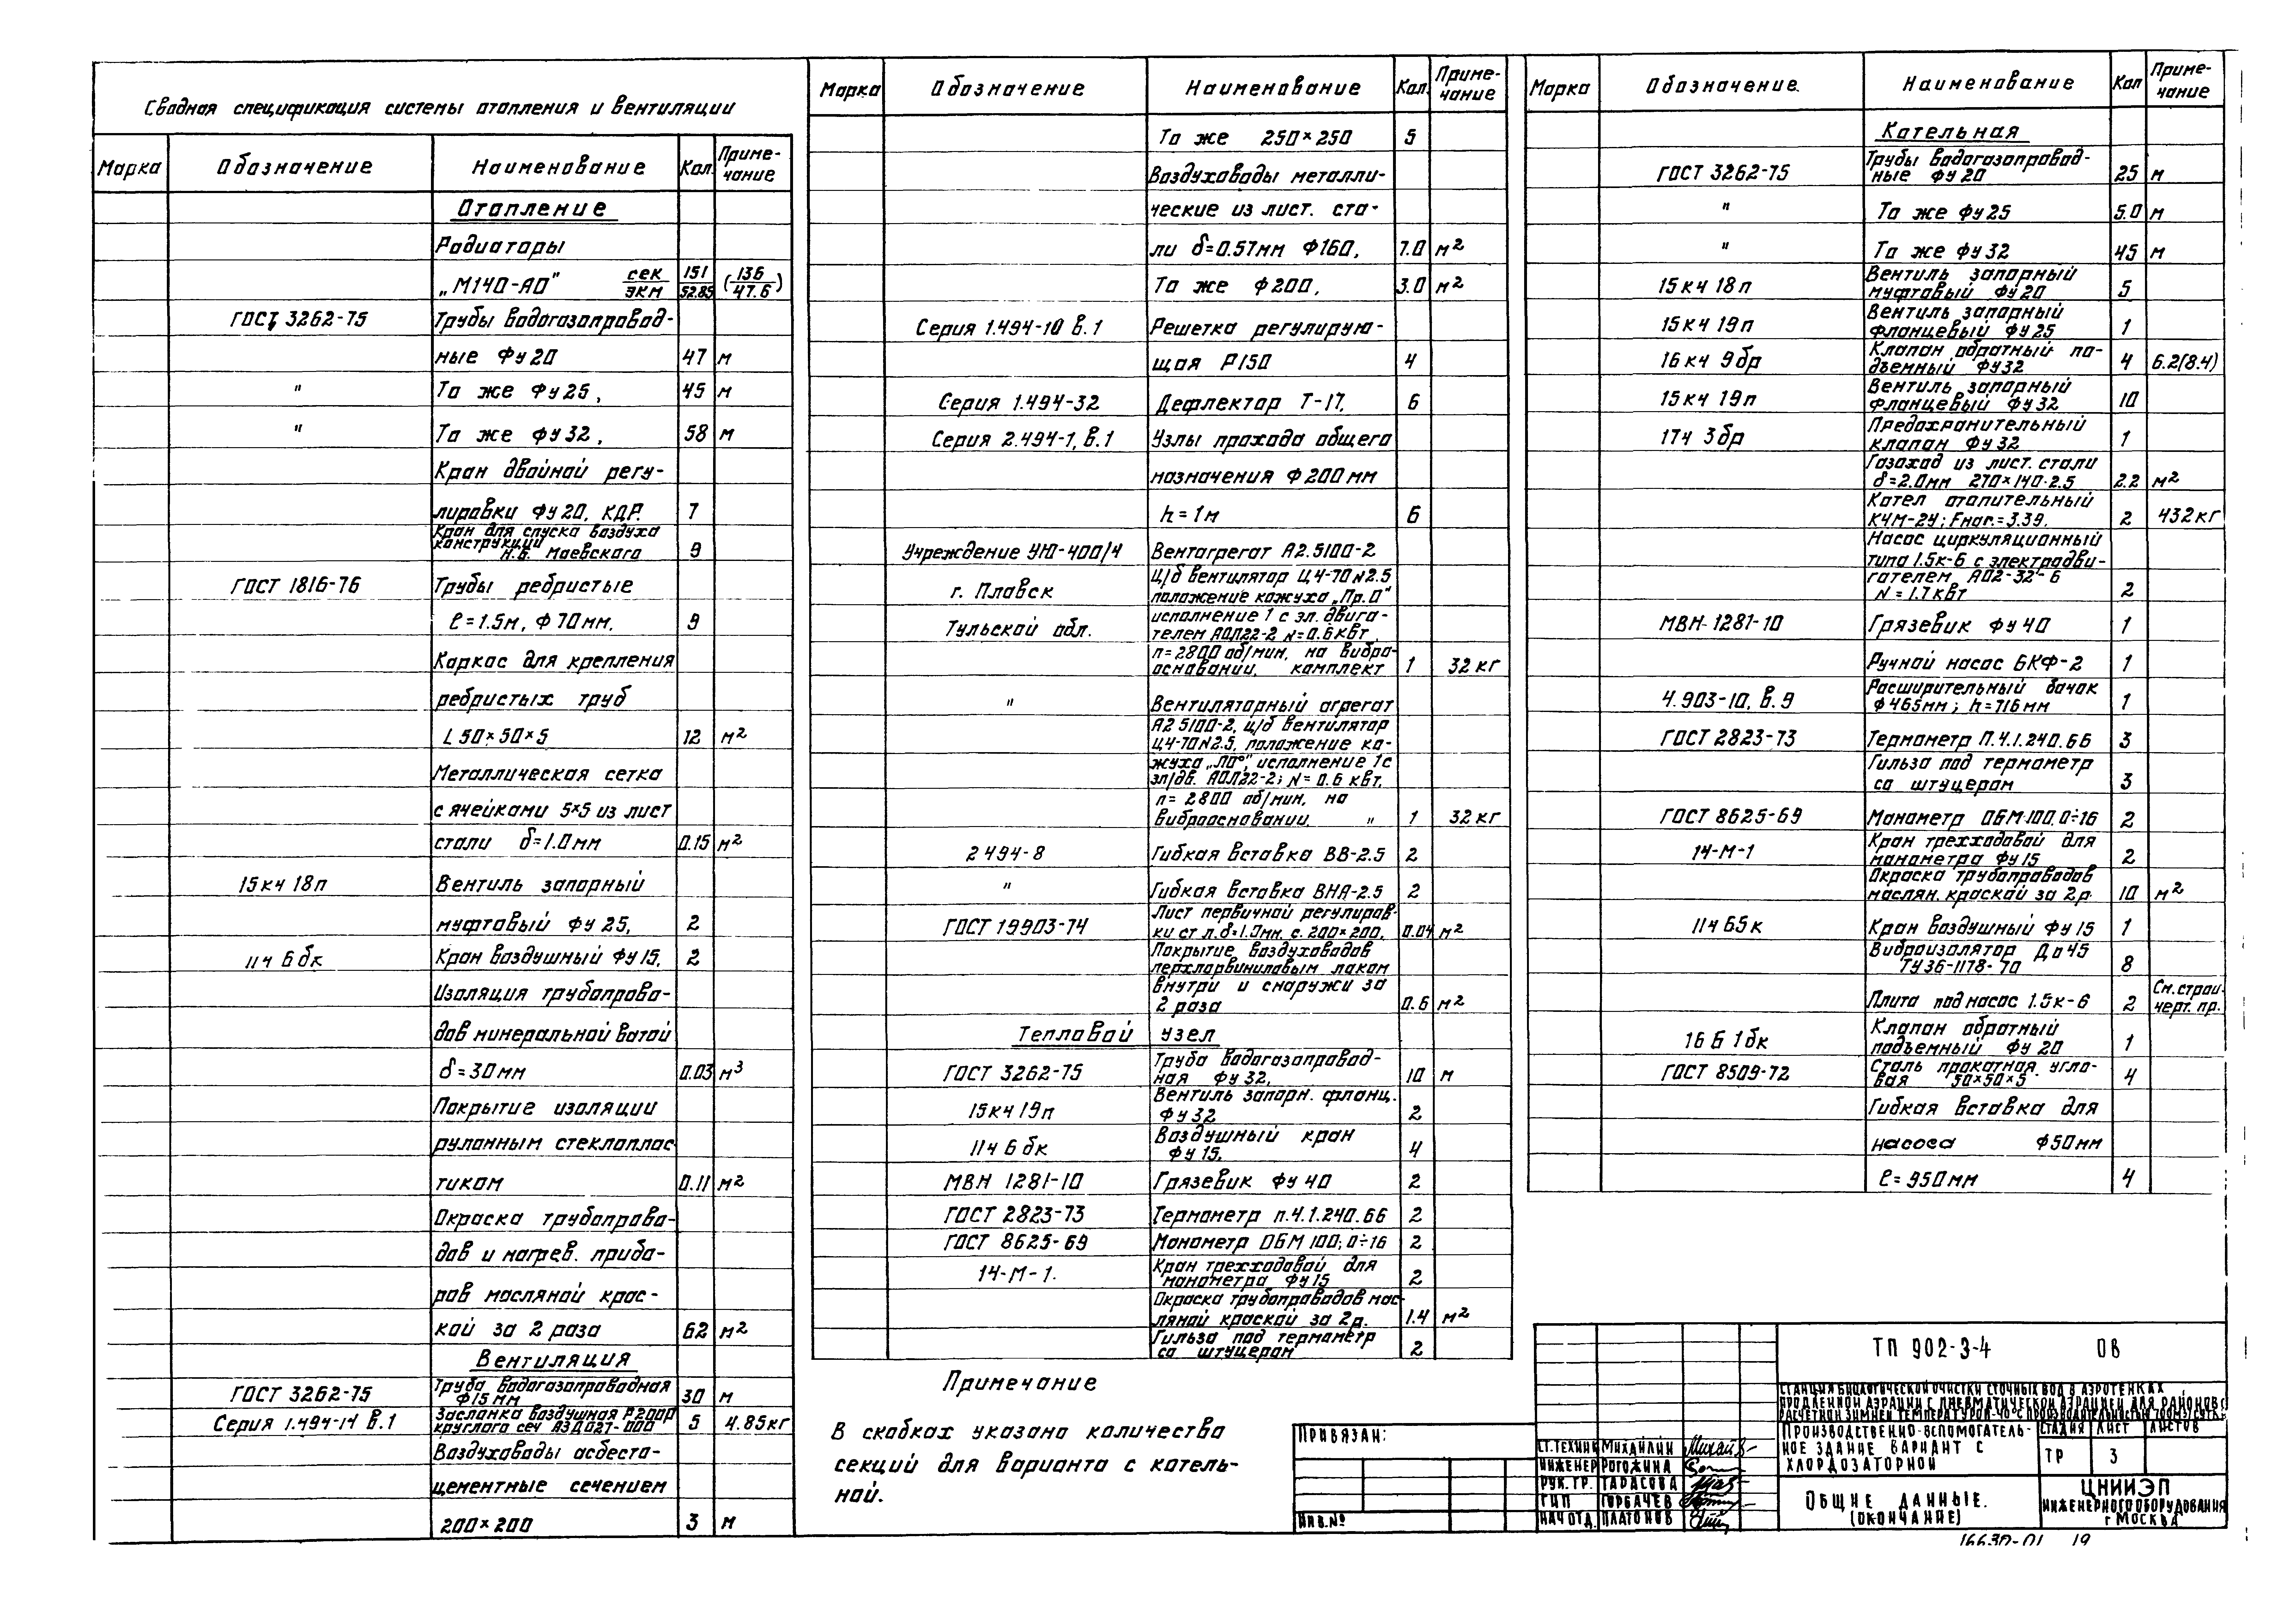 Сводная спецификация системы отопления и вентиляции
Марка Обозначение Наименование Кол. Приме-
чание
Отопление
Радиаторы
„М140-АО" сек 151 (136
экм 52.85 47.6)
ГОСТ 3262-75 Трубы водогазопровод-
ные Фу20 47 м
" То же Фу25, 45 м
" То же Фу32, 58 м
Кран двойной регу-
лировки Фу20, КДР. 7
Кран для спуска воздуха
конструкции
Н.Б. Маевского 9
ГОСТ 1816-76 Трубы ребристые
ℓ=1.5м, Ф70мм. 9
Каркас для крепления
ребристых труб
L 50×50×5 12 м2
Металлическая сетка
с ячейками 5×5 из лист
стали δ=1.0мм 0.15 м2
15кч 18п Вентиль запорный
муфтовый Фу 25, 2
11ч 6бк Кран воздушный Фу15. 2
Изоляция трубопрово-
дов минеральной ватой
δ=30мм 0.03 м3
Покрытие изоляции
рулонным стеклоплас
тиком 0.11 м2
Окраска трубопрово-
дов и нагрев. прибо-
ров масляной крас-
кой за 2 раза 62 м2
Вентиляция
ГОСТ 3262-75 Труба водогазопроводная
Ф15мм 30 м
Серия 1.494-14 в.1 Заслонка воздушная Р200Р
круглого сеч АЗД027-000 5 4.85кг
Воздуховоды асбесто-
цементные сечением
200×200 3 м
Марка Обозначение Наименование Кол. Приме-
чание
То же 250×250 5
Воздуховоды металли-
ческие из лист. ста-
ли δ=0.57мм Ф160, 7.0 м2
То же Ф200, 3.0 м2
Серия 1.494-10 в.1 Решетка регулирую-
щая Р150 4
Серия 1.494-32 Дефлектор Т-17, 6
Серия 2.494-1, в.1 Узлы прохода общего
назначения Ф200мм
h=1м 6
Учреждение УЮ-400/4 Вентагрегат А2.5100-2
г. Плавск ц/б вентилятор Ц4-70№2.5
положение кожуха „Пр.0"
Тульской обл. исполнение 1 с эл. двига-
телем АОЛ22-2 N=0.6кВт,
n=2800 об/мин, на вибро-
основании. комплект 1 32кг
" Вентиляторный агрегат
А2 5100-2, ц/б вентилятор
Ц4-70№2.5, положение ко-
жуха „Л0°", исполнение 1с
эл/дв. АОЛ22-2; N=0.6 кВт,
n= 2800 об/мин, на
виброосновании. " 1 32кг
2 494-8 Гибкая вставка ВВ-2.5 2
" Гибкая вставка ВНА-2.5 2
ГОСТ 19903-74 Лист первичной регулиров-
ки ст л.δ=1.0мм. с. 200×200, 0.04 м2
Покрытие воздуховодов
перхлорвиниловым лаком
внутри и снаружи за
2 раза 0.6 м2
Тепловой узел
ГОСТ 3262-75 Труба водогазопровод-
ная Фу32, 10 м
15кч 19п Вентиль запорн. фланц.
Фу32 2
11ч 6 бк Воздушный кран
Фу15, 4
МВН 1281-10 Грязевик Фу40 2
ГОСТ 2823-73 Термометр п.4.1.240.66 2
ГОСТ 8625-69 Манометр ОБМ 100; 0÷16 2
14-М-1. Кран трехходовой для
манометра Фу15 2
Окраска трубопроводов мас-
ляной краской за 2р. 1.4 м2
Гильза под термометр
со штуцером 2
Примечание
В скобках указано количество
секций для варианта с котель-
ной.
Марка Обозначение. Наименование Кол Приме-
чание
Котельная
ГОСТ 3262-75 Трубы водогазопровод-
ные Фу20 25 м
" То же Фу25 5.0 м
" То же Фу32 45 м
15кч 18п Вентиль запорный
муфтовый Фу20 5
15кч 19п Вентиль запорный
фланцевый Фу25 1
16кч 9бр Клапан обратный по-
дъемный Фу32 4 6.2(8.4)
15кч 19п Вентиль запорный
фланцевый Фу32 10
17ч 3бр Предохранительный
клапан Фу32 1
Газоход из лист. стали
δ=2.0мм 270×140·2.5 2.2 м2
Котел отопительный
КЧМ-2У; Fнаг.=3.39. 2 432кг
Насос циркуляционный
типа 1.5к-6 с электродви-
гателем АО2-32-6
N=1.7кВт 2
МВН-1281-10 Грязевик Фу40 1
Ручной насос БКФ-2 1
4.903-10, в.9 Расширительный бачок
Ф465мм; h=716мм 1
ГОСТ 2823-73 Термометр П.4.1.240.66 3
Гильза под термометр
со штуцером 3
ГОСТ 8625-69 Манометр ОБМ-100, 0÷16 2
14-М-1 Кран трехходовой для
манометра Фу15 2
Окраска трубопроводов
маслян. краской за 2р 10 м2
11ч 65к Кран воздушный Фу15 1
Виброизолятор До45
ТУ36-1178-70 8
Плита под насос 1.5к-6 2 См. строи.
черт. пр.
16 Б 1бк Клапан обратный
подъемный Фу20 1
ГОСТ 8509-72 Сталь прокатная угло-
вая 50×50×5 4
Гибкая вставка для
насоса Ф50мм
ℓ=950мм 4
ТП 902-3-4 ОВ
СТАНЦИЯ БИОЛОГИЧЕСКОЙ ОЧИСТКИ СТОЧНЫХ ВОД В АЭРОТЕНКАХ
ПРОДЛЕННОЙ АЭРАЦИИ С ПНЕВМАТИЧЕСКОЙ АЭРАЦИЕЙ ДЛЯ РАЙОНОВ С
РАСЧЕТНОЙ ЗИМНЕЙ ТЕМПЕРАТУРОЙ-40°С ПРОИЗВОДИТЕЛЬНОСТЬЮ 700М3/СУТК.
ПРОИЗВОДСТВЕННО-ВСПОМОГАТЕЛЬ-
НОЕ ЗДАНИЕ ВАРИАНТ С
ХЛОРДОЗАТОРНОЙ
СТАДИЯ ЛИСТ ЛИСТОВ
ТР 3
ОБЩИЕ ДАННЫЕ.
(ОКОНЧАНИЕ)
ЦНИИЭП
ИНЖЕНЕРНОГО ОБОРУДОВАНИЯ
г МОСКВА
ПРИВЯЗАН:
ИНВ.№
СТ.ТЕХНИК МИХАЙЛИН
ИНЖЕНЕР РОГОЖИНА
РУК. ГР. ТАРАСОВА
ГИП ГОРБАЧЕВ
НАЧ ОТД. ПЛАТОНОВ
16630-01 19